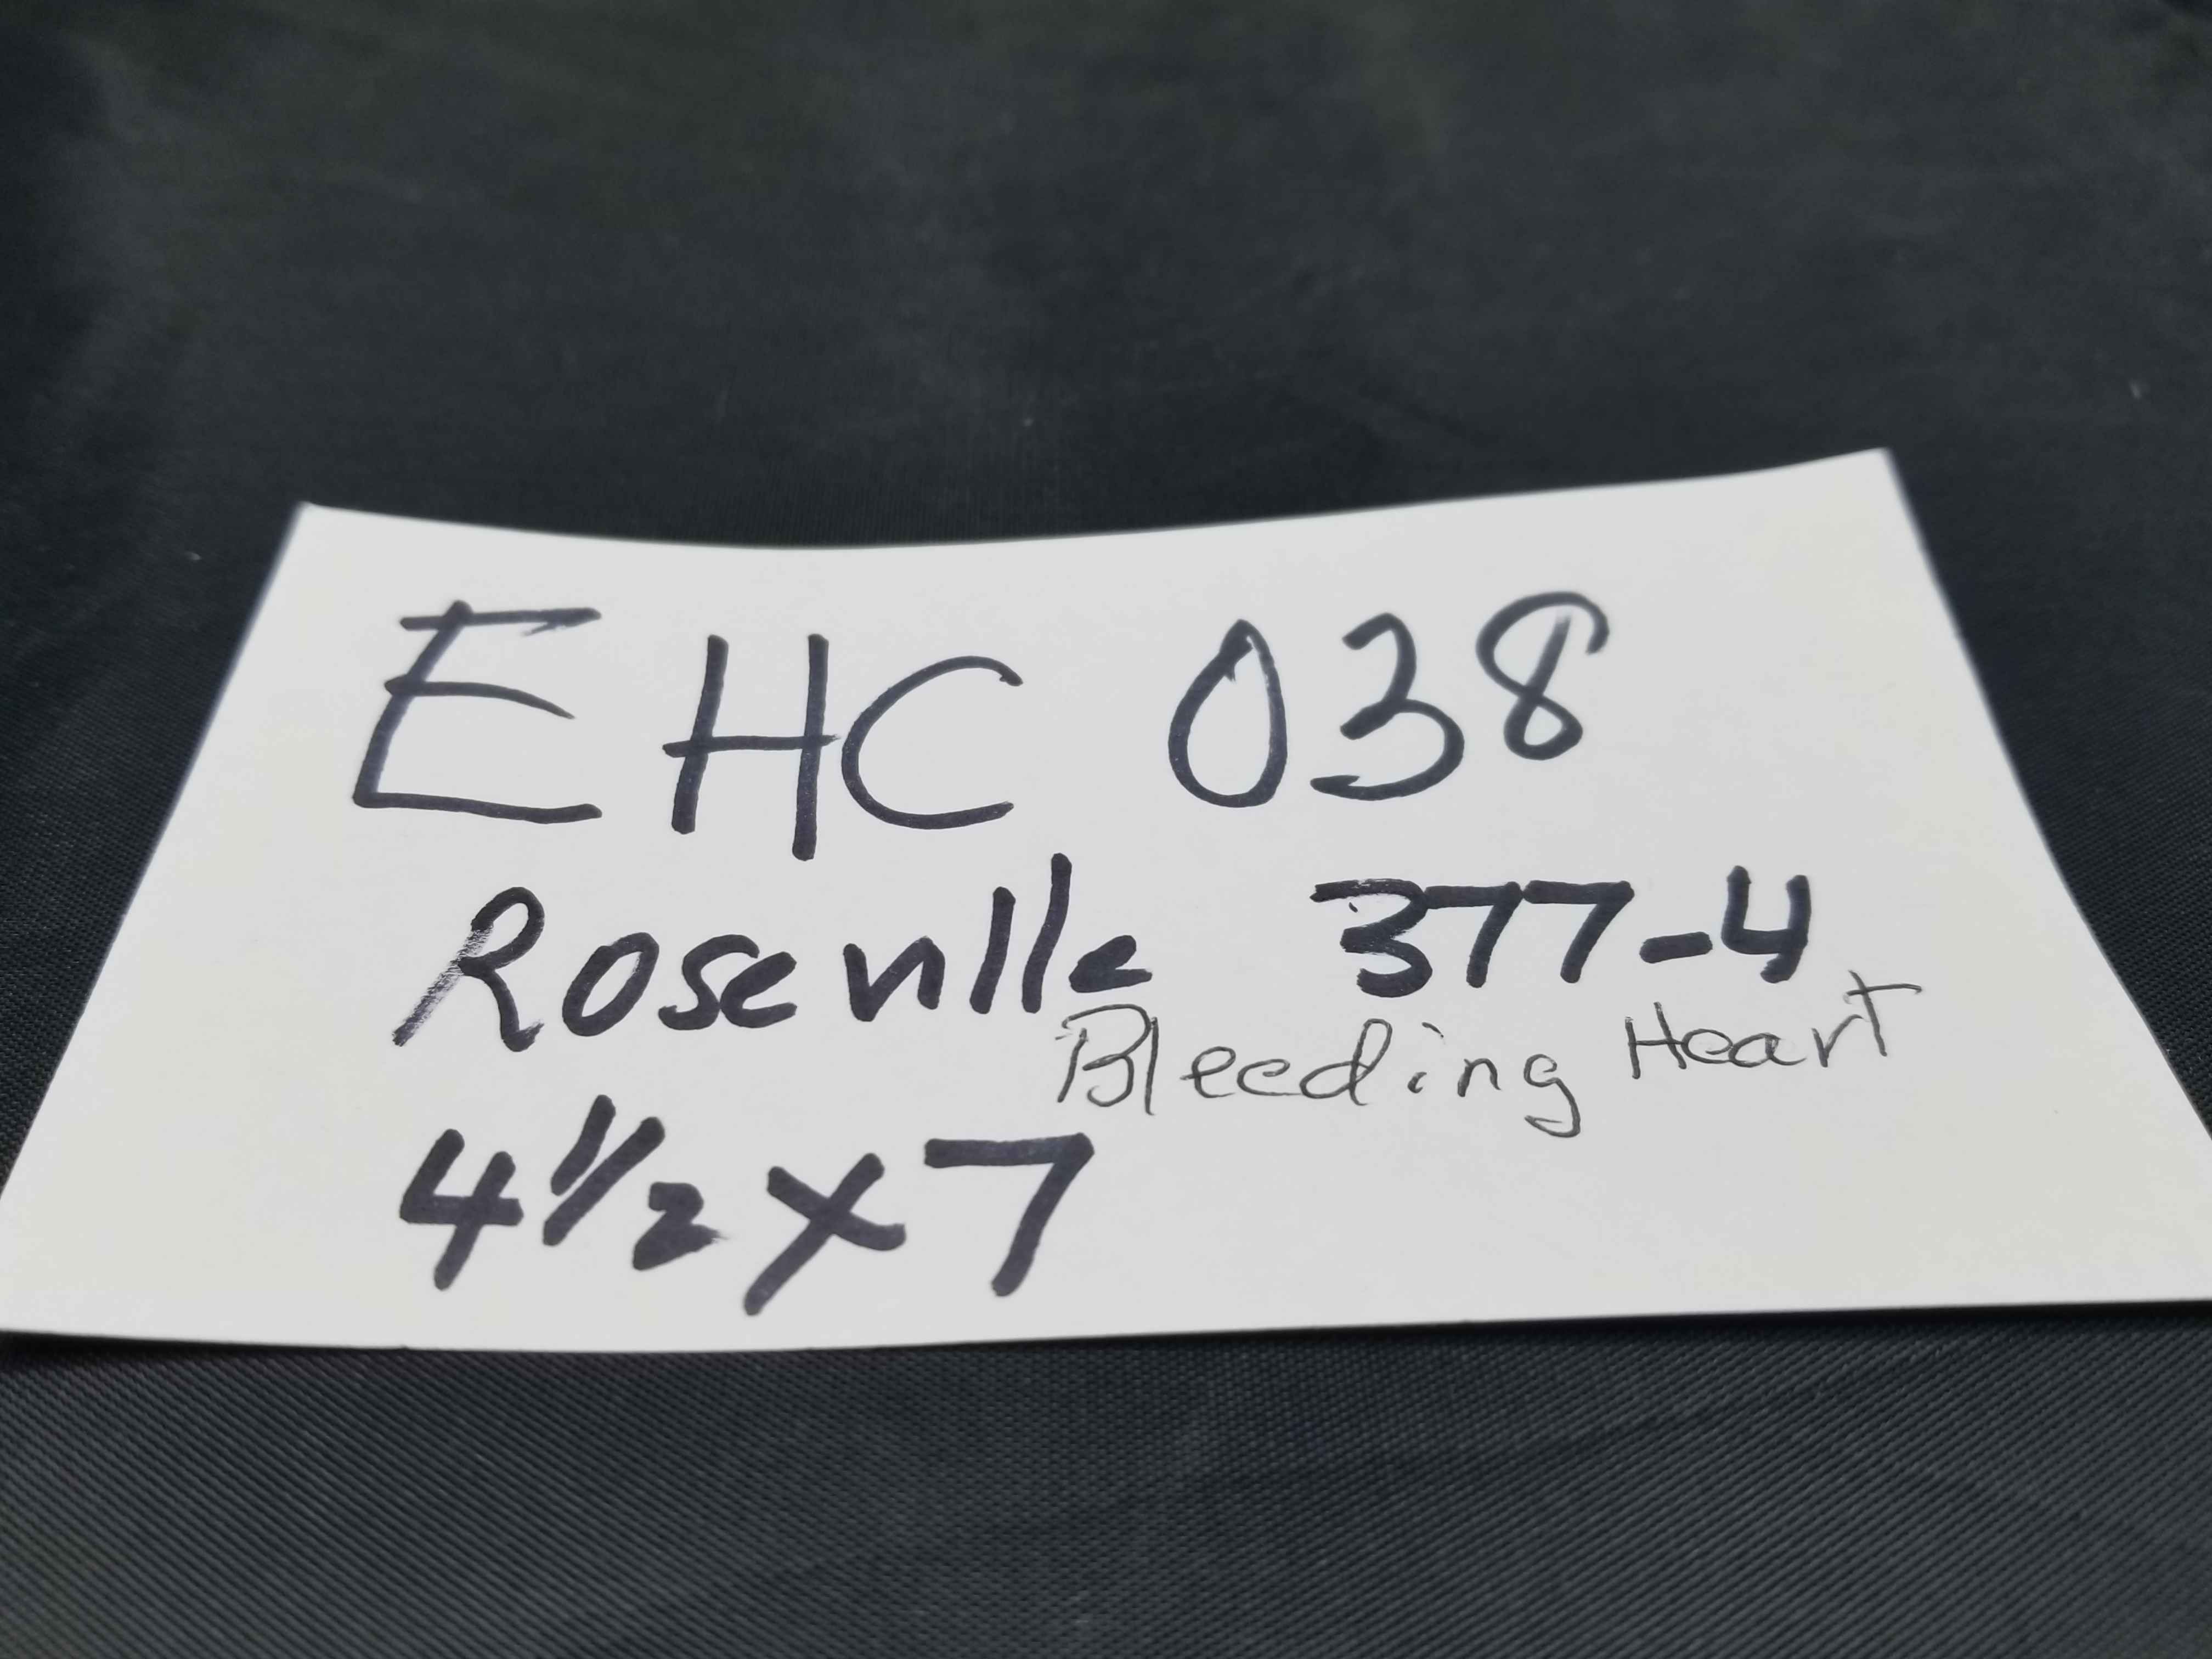 EHC 038
Roseville 377-4
Bleeding Heart
4 1/2 x 7